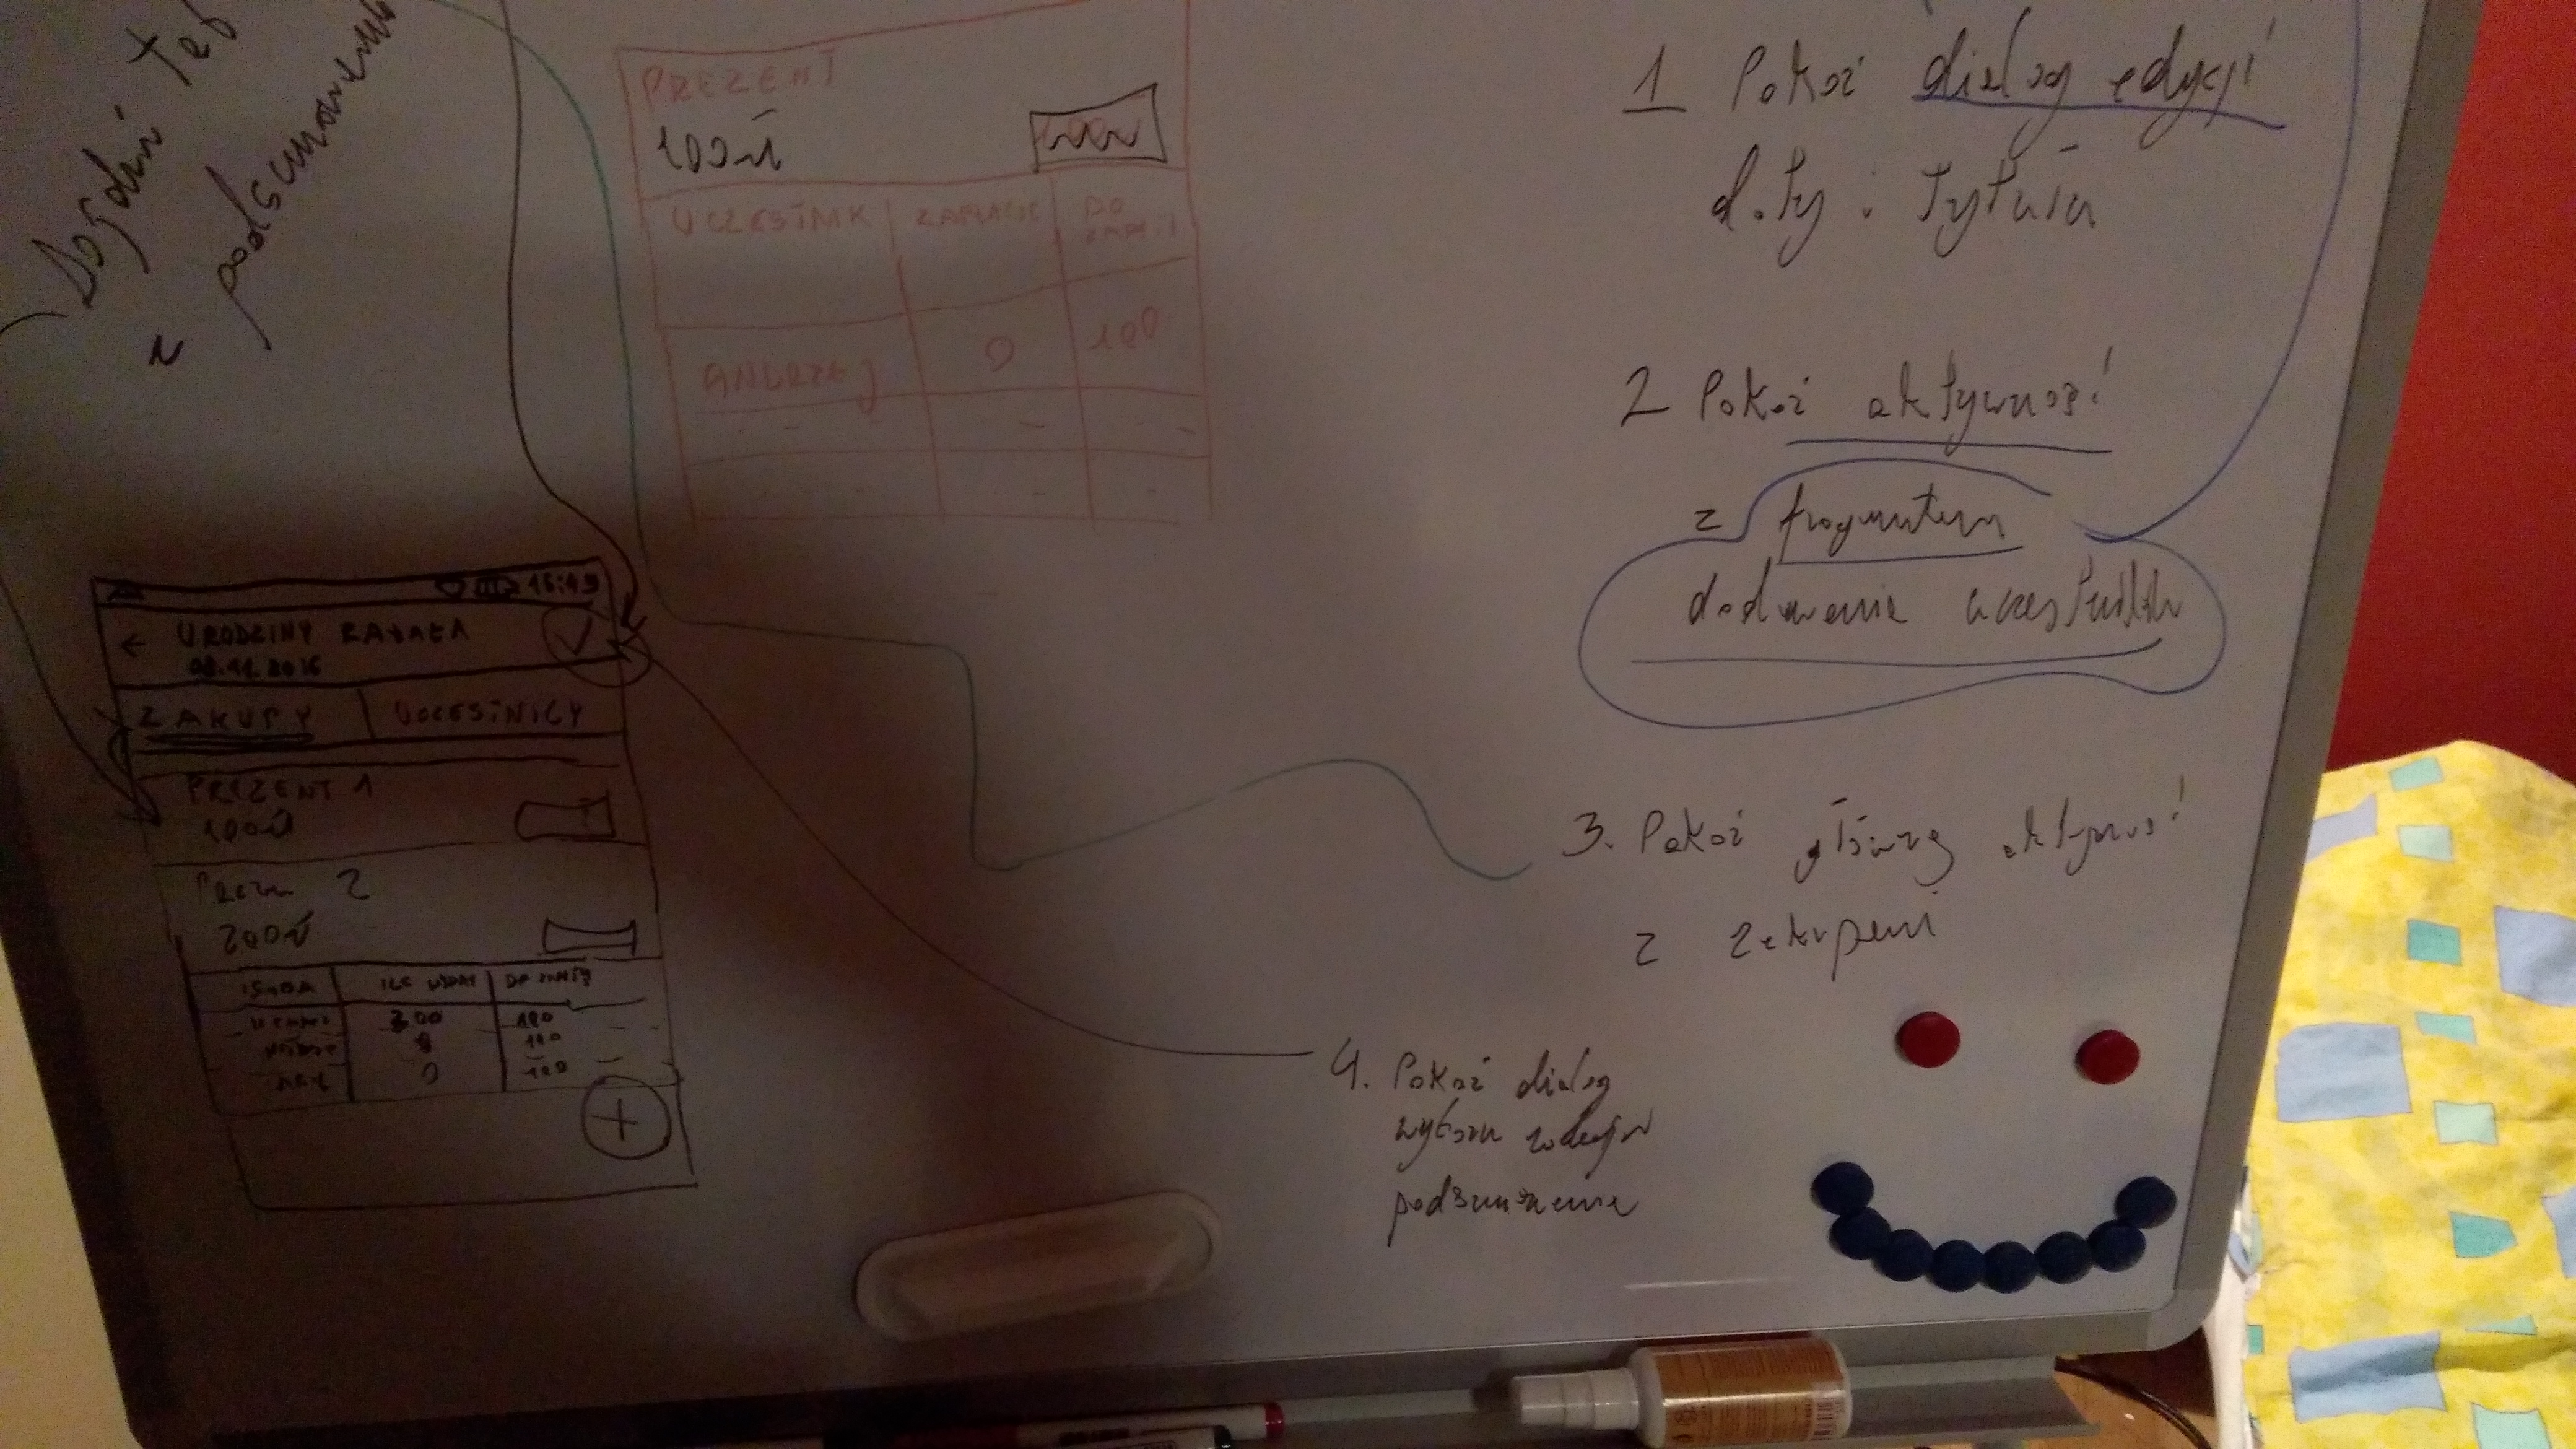 podsumowanie
PREZENT
100zł
UCZESTNIK ZAPŁACIŁ DO
ANDRZEJ 0 100
16:49
← URODZINY RAFAŁA
11.2016
ZAKUPY UCZESTNICY
PREZENT 1
100zł
2
200zł
300 100
0 100
0 100
+
1 Pokaż dialog edycji
daty i tytułu
2 Pokaż aktywność
z fragmentem
dodawanie uczestników
3. Pokaż główną aktywność
z zakupami
4. Pokaż dialog
wyboru rodzajów
podsumowania